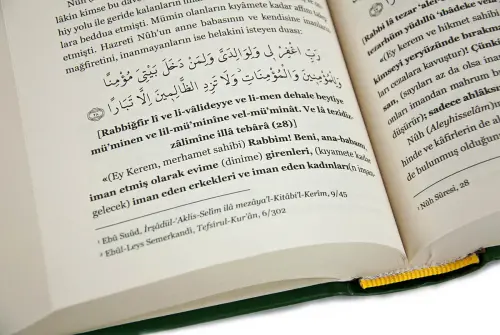 hiy yolu ile geride kalanların
lara beddua etmişti. Mümin olanların kıyâmete kadar affını
etmişti. Hazreti Nûh'un anne babasının ve kendisine inananların
mağfiretini, inanmayanların ise helakini isteyen duası:
رَبِّ اغْفِرْ لِي وَلِوَالِدَيَّ وَلِمَنْ دَخَلَ بَيْتِيَ مُؤْمِنًا
وَلِلْمُؤْمِنِينَ وَالْمُؤْمِنَاتِ وَلَا تَزِدِ الظَّالِمِينَ إِلَّا تَبَارًا
[Rabbiğfir li ve li-vâlideyye ve li-men dehale beytiye
mü'minen ve lil-mü'minîne vel-mü'minât. Ve lâ tezidiz-
zâlimîne illâ tebârâ (28)]
«(Ey Kerem, merhamet sahibi) Rabbim! Beni, ana-babamı,
iman etmiş olarak evime (dinime) girenleri, (kıyamete kadar
gelecek) iman eden erkekleri ve iman eden kadınları(n
¹ Ebû Suûd, İrşâdül-'Aklis-Selîm ilâ mezâya'l-Kitâbi'l-Kerîm, 9/45
² Ebûl-Leys Semerkandî, Tefsirul-Kur'ân, 6/302
Rabbi lâ tezar 'alel-
tezarhüm yudıllû 'ibâdeke ve
«(Ey Kerem ve hikmet sahibi
kimseyi yeryüzünde bırakma
layan cezalara kavuştur)! Çünkü
san, (sayıları az da olsa inan
onları imandan mahrum
düşürür); sadece ahlâksız
Nûh (Aleyhisselâm)
hinde ve kâfirlerin de
de bulunmuş olduğundan
¹ Nûh Sûresi, 28